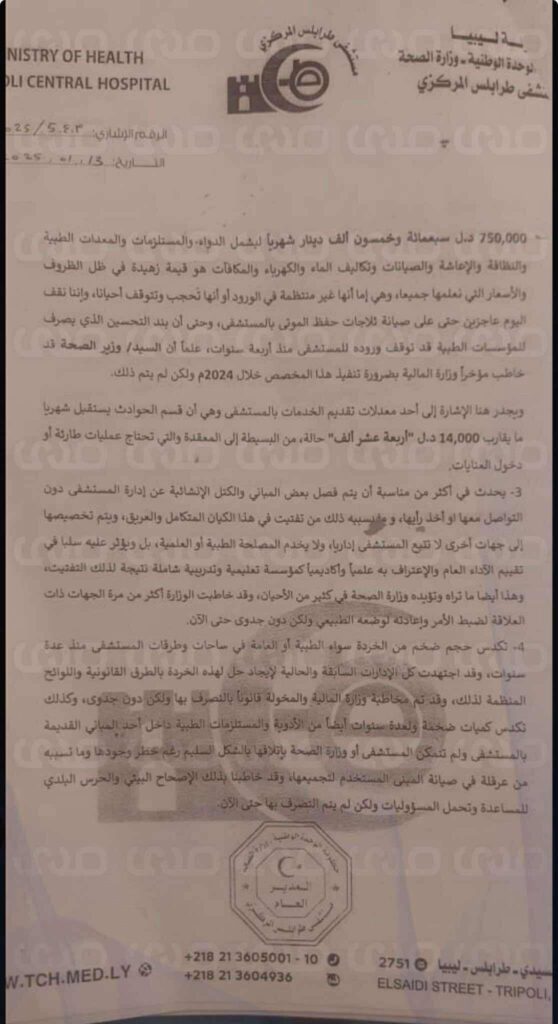 ـة ليبيا
لوحدة الوطنية - وزارة الصحة
ـتشفى طرابلس المركزي
مستشفى طرابلس المركزي
NISTRY OF HEALTH
OLI CENTRAL HOSPITAL
الرقم الإشاري: 025/5.٤.٣
التاريخ: 2025.01.13
750,000 د.ل سبعمائة وخمسون ألف دينار شهرياً ليشمل الدواء والمستلزمات والمعدات الطبية
والنظافة والإعاشة والصيانات وتكاليف الماء والكهرباء والمكافآت هو قيمة زهيدة في ظل الظروف
والأسعار التي نعلمها جميعا، وهي إما أنها غير منتظمة في الورود أو أنها تُحجب وتتوقف أحيانا، وإننا نقف
اليوم عاجزين حتى على صيانة ثلاجات حفظ الموتى بالمستشفى، وحتى أن بند التحسين الذي يصرف
للمؤسسات الطبية قد توقف وروده للمستشفى منذ أربعة سنوات، علماً أن السيد/ وزير الصحة قد
خاطب مؤخراً وزارة المالية بضرورة تنفيذ هذا المخصص خلال 2024م ولكن لم يتم ذلك.
ويجدر هنا الإشارة إلى أحد معدلات تقديم الخدمات بالمستشفى وهي أن قسم الحوادث يستقبل شهريا
ما يقارب 14,000 د.ل "أربعة عشر ألف" حالة، من البسيطة إلى المعقدة والتي تحتاج عمليات طارئة أو
دخول العنايات.
3- يحدث في أكثر من مناسبة أن يتم فصل بعض المباني والكتل الإنشائية عن إدارة المستشفى دون
التواصل معها او أخذ رأيها، و يسببه ذلك من تفتيت في هذا الكيان المتكامل والعريق، ويتم تخصيصها
إلى جهات أخرى لا تتبع المستشفى إداريا، ولا يخدم المصلحة الطبية أو العلمية، بل ويؤثر عليه سلبا في
تقييم الآداء العام والإعتراف به علمياً وأكاديمياً كمؤسسة تعليمية وتدريبية شاملة نتيجة لذلك التفتيت،
وهذا أيضا ما تراه وتؤيده وزارة الصحة في كثير من الأحيان، وقد خاطبت الوزارة أكثر من مرة الجهات ذات
العلاقة لضبط الأمر وإعادته لوضعه الطبيعي ولكن دون جدوى حتى الآن.
4- تكدس حجم ضخم من الخردة سواء الطبية أو العامة في ساحات وطرقات المستشفى منذ عدة
سنوات، وقد اجتهدت كل الإدارات السابقة والحالية لإيجاد حل لهذه الخردة بالطرق القانونية واللوائح
المنظمة لذلك، وقد تم مخاطبة وزارة المالية والمخولة قانوناً بالتصرف بها ولكن دون جدوى، وكذلك
تكدس كميات ضخمة ولعدة سنوات أيضاً من الأدوية والمستلزمات الطبية داخل أحد المباني القديمة
بالمستشفى ولم تتمكن المستشفى أو وزارة الصحة بإتلافها بالشكل السليم رغم خطر وجودها وما تسببه
من عرقلة في صيانة المبنى المستخدم لتجميعها، وقد خاطبنا بذلك الإصحاح البيئي والحرس البلدي
للمساعدة وتحمل المسؤوليات ولكن لم يتم التصرف بها حتى الآن.
حكومة الوحدة الوطنية - وزارة الصحة
المدير
العام
مستشفى طرابلس المركزي
W.TCH.MED.LY
+218 21 3605001 - 10
+218 21 3604936
2751
سيدي - طرابلس - ليبيا
ELSAIDI STREET - TRIPOLI,
صدى